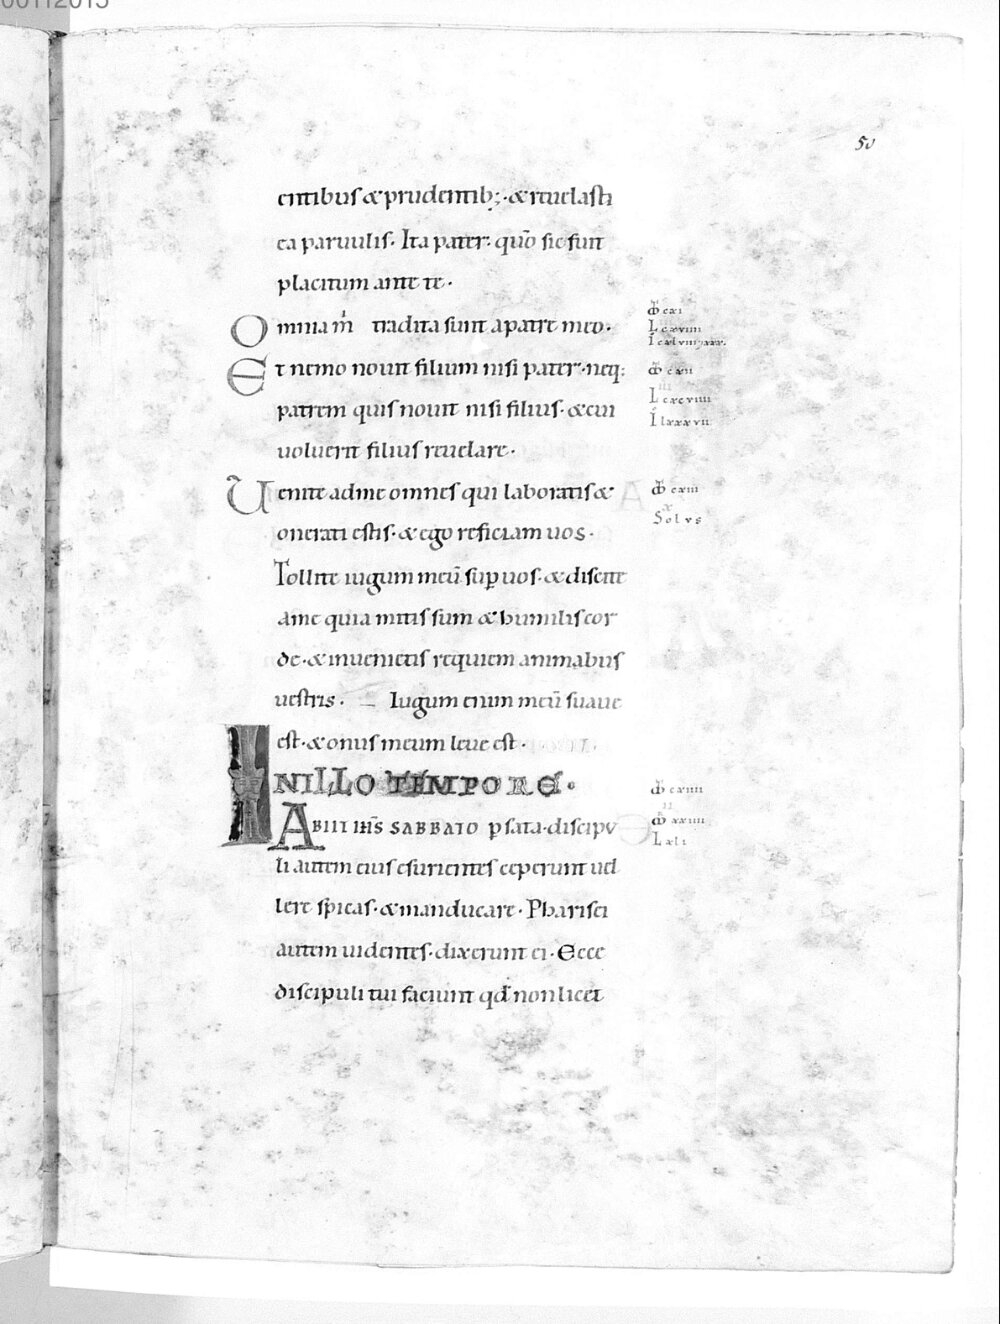 50
entibus & prudentib; · & reuelasti
ea paruulis · Ita pater · quō sic fuit
placitum ante te ·
Omnia m̄ tradita sunt a patre meo ·
Et nemo nouit filium nisi pater · neq;
patrem quis nouit nisi filius · & cui
uoluerit filius reuelare ·
Uenite ad me omnes qui laboratis &
onerati estis · & ego reficiam uos ·
Tollite iugum meū sup uos · & discite
a me quia mitis sum & humilis cor
de · & inuenietis requiem animabus
uestris · Iugum enim meū suaue
est · & onus meum leue est ·
IN ILLO TEMPORE ·
ABIIT IHS SABBATO p sata · discipu
li autem eius esurientes ceperunt uel
lere spicas · & manducare · Pharisei
autem uidentes · dixerunt ei · Ecce
discipuli tui faciunt qđ non licet
cxi
L cxviiii
cxii
I lxxxvii
cxiii
Solus
cxiiii
xxiiii
L xli